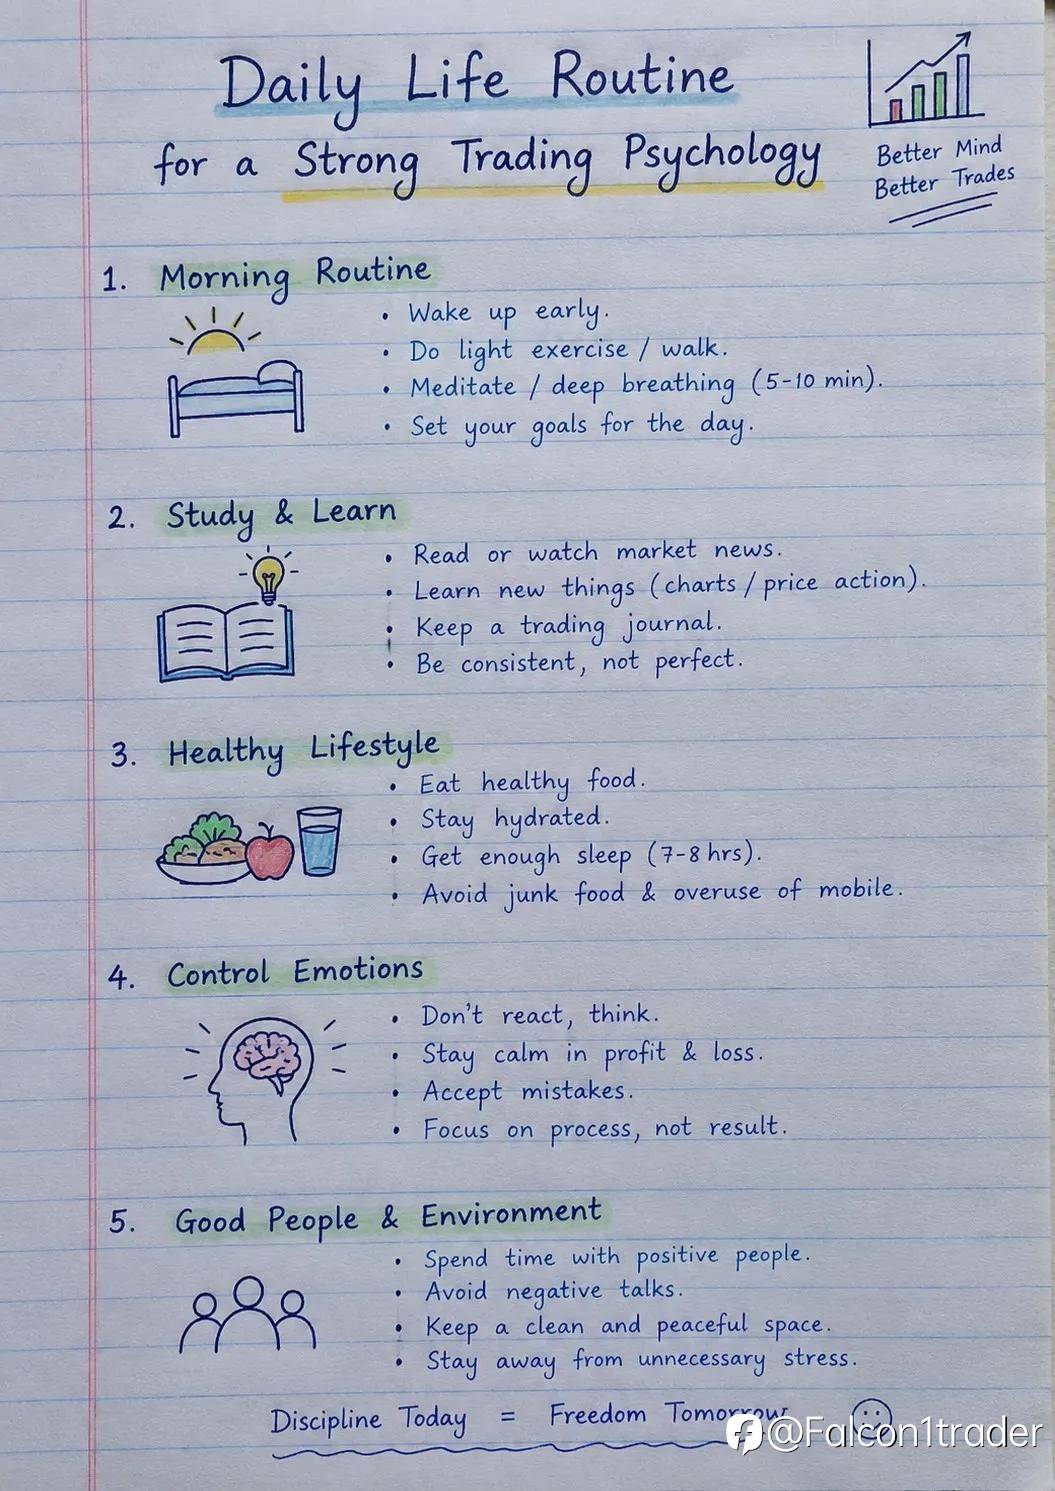 Daily Life Routine
for a Strong Trading Psychology
Better Mind
Better Trades
1. Morning Routine
• Wake up early.
• Do light exercise / walk.
• Meditate / deep breathing (5-10 min).
• Set your goals for the day.
2. Study & Learn
• Read or watch market news.
• Learn new things (charts / price action).
• Keep a trading journal.
• Be consistent, not perfect.
3. Healthy Lifestyle
• Eat healthy food.
• Stay hydrated.
• Get enough sleep (7-8 hrs).
• Avoid junk food & overuse of mobile.
4. Control Emotions
• Don't react, think.
• Stay calm in profit & loss.
• Accept mistakes.
• Focus on process, not result.
5. Good People & Environment
• Spend time with positive people.
• Avoid negative talks.
• Keep a clean and peaceful space.
• Stay away from unnecessary stress.
Discipline Today = Freedom Tomorrow
@Falcon1trader